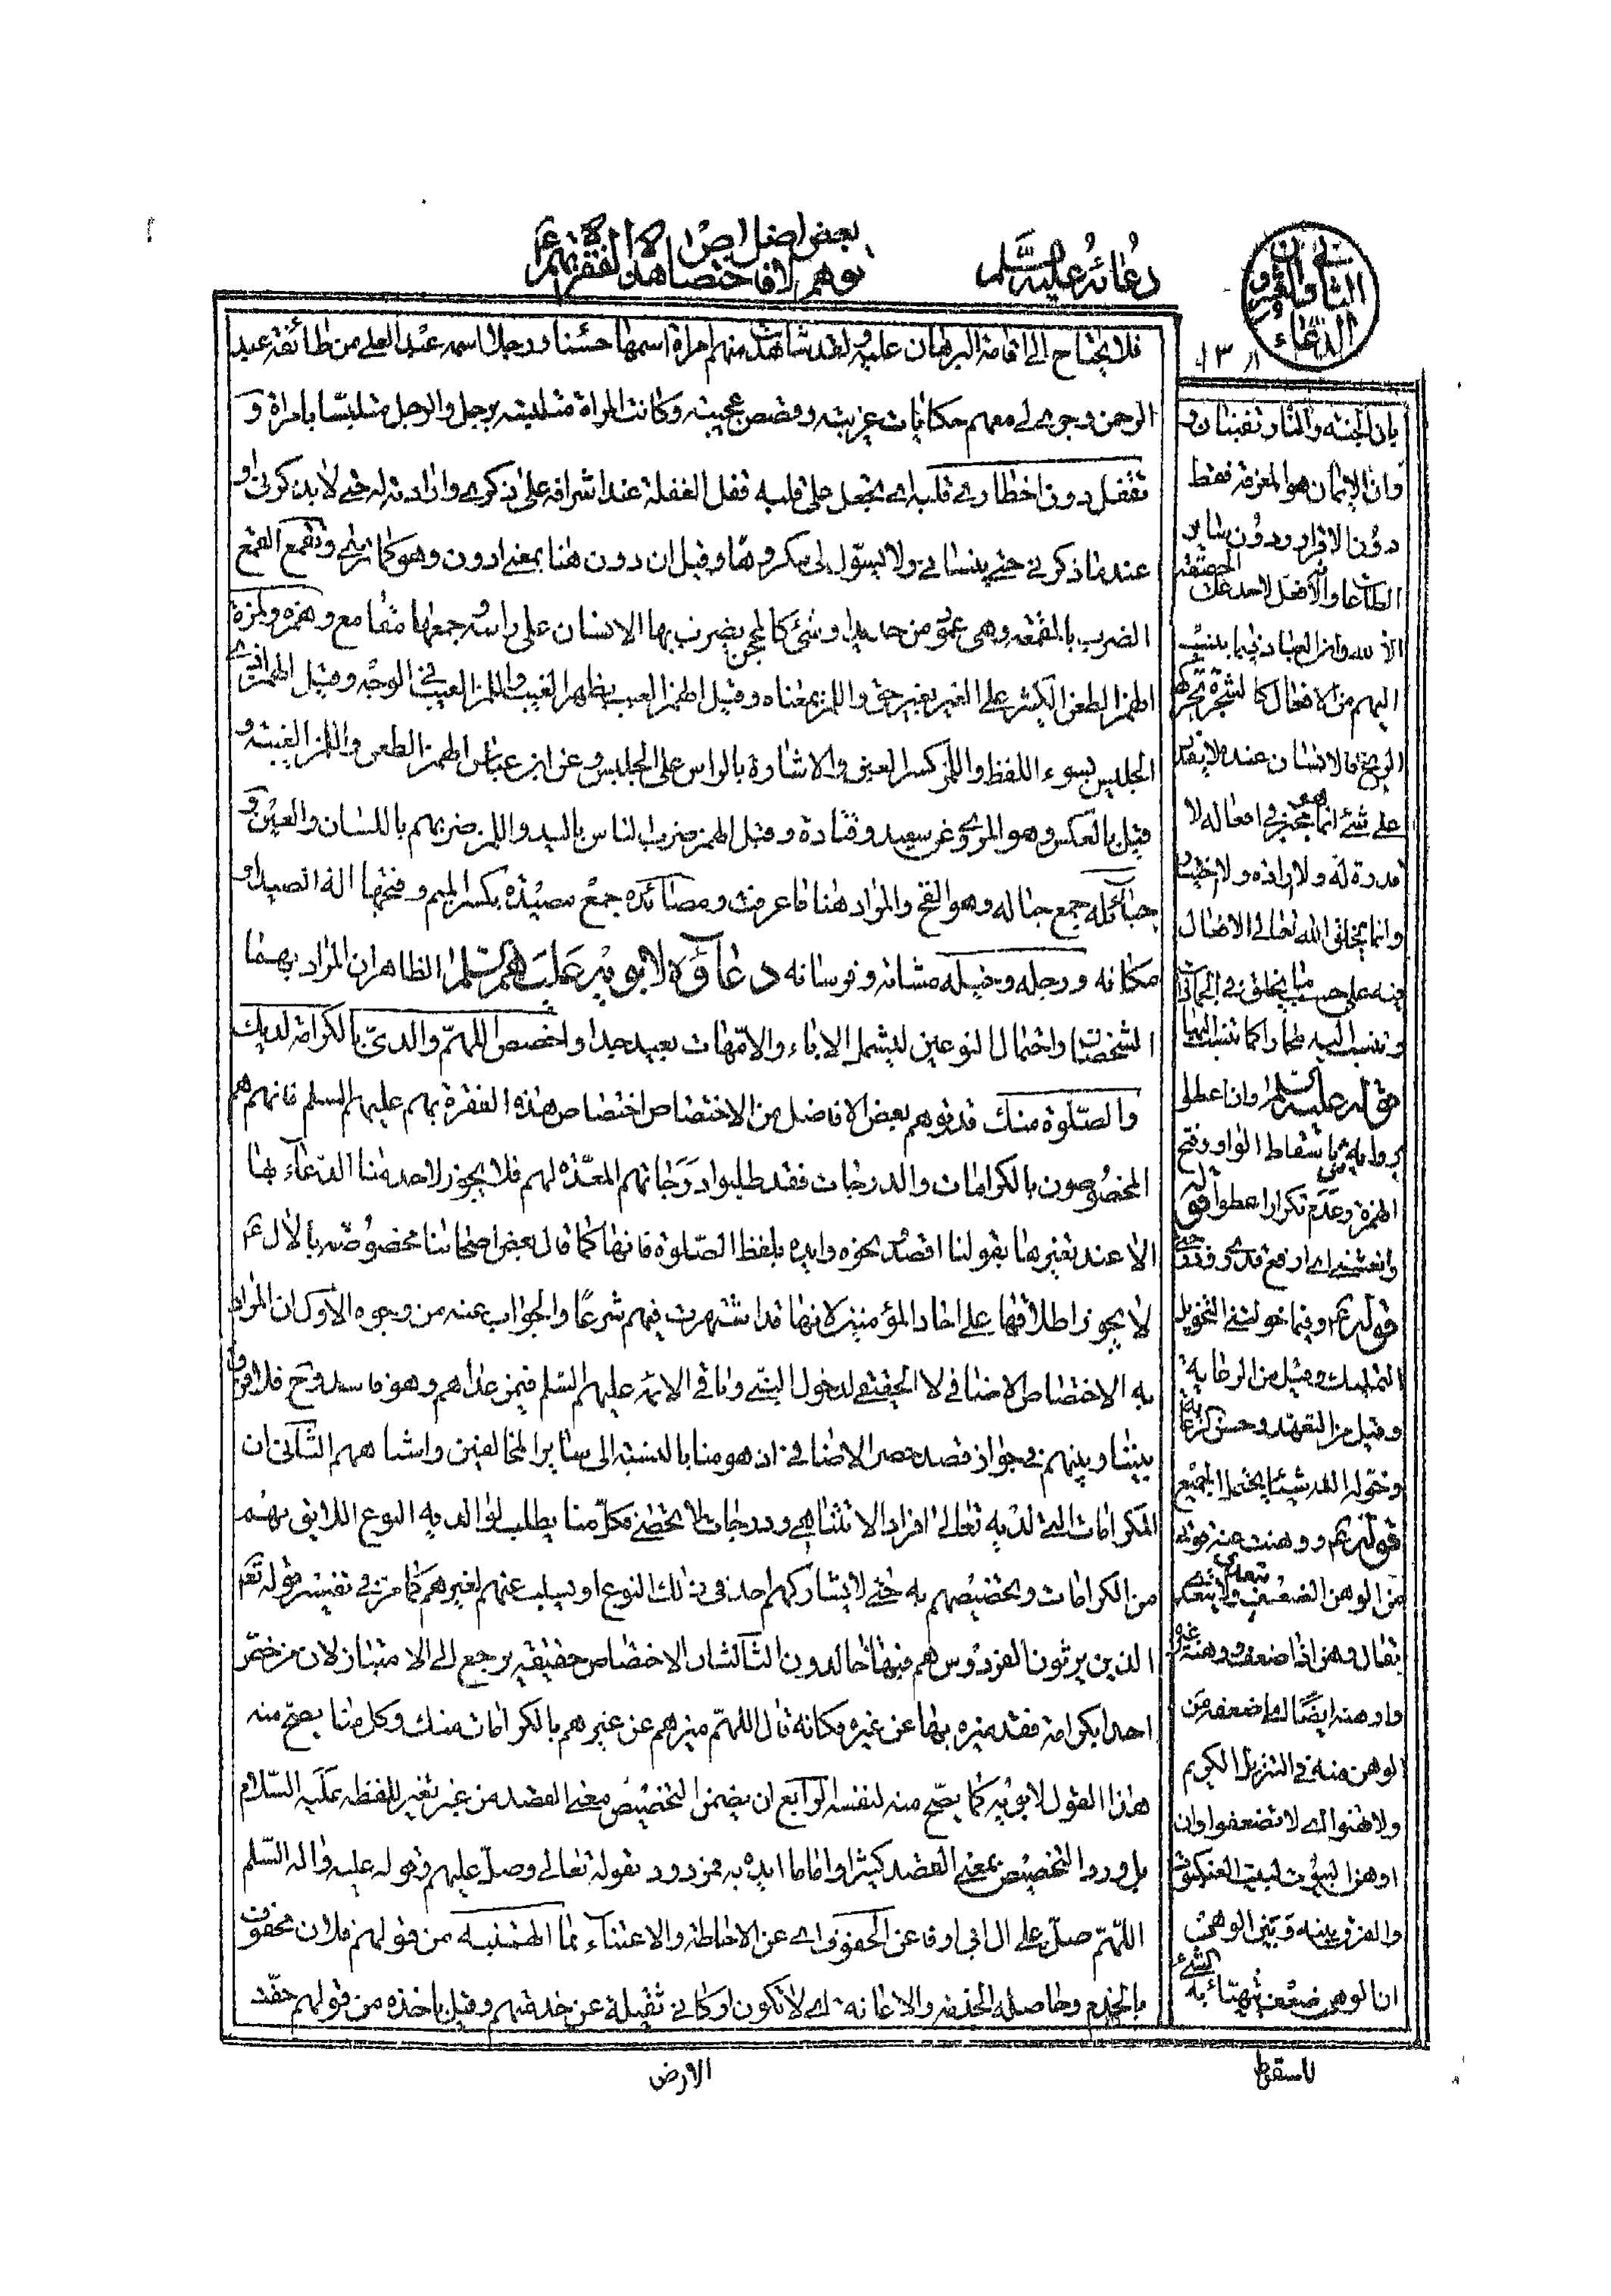 دعائه عليه السلم
توهم بعض الافاضل اختصاص هذه الفقرة بهم ع
١٣٨
فلا يحتاج الى اقامة البرهان عليه ولقد شاهدت منهم امراة اسمها حسنا ورجلا اسمه عبد العلى من طائفة عبد
الرحمن وجرى لى معهم حكايات غريبة وقصص عجيبة وكانت المراة متلبسة برجل والرجل متلبسا بامراة و
تقفل دون اخطارى قلبه اى تجعل على قلبه قفل الغفلة عند اشرافه على ذكرى وارادته له حتى لا يذكرنى او
عند ما ذكرنى حتى ينسانى ولا يسول لى مكروها وقيل ان دون هنا بمعنى ادون وهو كما ترى وتقمع القمع
الضرب بالمقمعة وهى عمود من حديد او شئ كالمحجن يضرب بها الانسان على راسه جمعها مقامع وهمزه ولمزه
الهمز الطعن الكثير على الغير بغير حق واللمز بمعناه وقيل الهمز العيب بظهر الغيب واللمز العيب فى الوجه وقيل الهمز
الجليس بسوء اللفظ واللمز كسر العين والاشارة بالراس على الجليس وعن ابن عباس الهمز الطعن واللمز الغيبة و
قيل بالعكس وهو المروى عن سعيد وقتادة وقيل الهمز ضرب الناس باليد واللمز ضربهم باللسان والعين و
حبائله جمع حبالة وهو الفخ والمراد هنا ما عرفت ومصائده جمع مصيدة بكسر الميم وفتحها آلة الصيد او
مكانه ورجله وخيله مشاته وفرسانه دعاؤه لابويه عليهم السلم الظاهر ان المراد بهما
الشخصان واحتمال النوعين ليشمل الاباء والامهات بعيد جدا واخصص اللهم والدى بالكرامة لديك
والصلوة منك قد توهم بعض الافاضل من الاختصاص اختصاص هذه الفقرة بهم عليهم السلم فانهم هم
المخصوصون بالكرامات والدرجات فقد طلبوا درجاتهم المعدة لهم فلا يجوز لاحد منا الدعاء بها
الا عند تغيرها بقولنا اقصد نحوه وايده بلفظ الصلوة فانها كما قال بعض اصحابنا مخصوصة بالال ع
لا يجوز اطلاقها على احاد المؤمنين لانها قد اشتهرت فيهم شرعا والجواب عنه من وجوه الاول ان المراد
به الاختصاص الاضافى لا الحقيقى لدخول النبى وباقى الائمة عليهم السلم فيمن عداهم وهو فاسد وح فلا فرق
بيننا وبينهم فى جواز قصد حصر الاضافى اذ هو منا بالنسبة الى ساير المخالفين واشباههم الثانى ان
الكرامات التى لديه تعالى افراد لا تتناهى ودرجات لا تحصى فكل منا يطلب لوالديه النوع اللايق بهم
من الكرامات وتخصيصهم به حتى لا يشاركهم احد فى ذلك النوع او يسلب عنهم لغيرهم كما مر فى تفسير قوله تع
الذين يرثون الفردوس هم فيها خالدون الثالث ان الاختصاص حقيقة يرجع الى الامتياز لان من خص
احدا بكرامة فقد ميزه بها عن غيره فكانه قال اللهم ميزهم عن غيرهم بالكرامات منك وكل منا يصح منه
هذا القول لابويه كما يصح منه لنفسه الرابع ان يضمن التخصيص معنى القصد من غير تغير للفظه عليه السلام
بل ورود التخصيص بمعنى القصد كثير واما ما ايده به فمردود بقوله تعالى وصل عليهم وقوله عليه واله السلم
اللهم صل على ال ابى اوفا عن الحفوف اى عن الاحاطة والاعتناء بما الهمتنيه من قولهم فلان محفوف
بالخدم وحاصله الخفة والاعانة اى لا تكون اركانى ثقيلة عن خدمتهم وقيل باخذه من قولهم حفت
الارض
بان الجنة والنار تفنيان و
وان الايمان هو المعرفة فقط
دون الاقرار ودون ساير
الطاعات والافعل لاحد على الحقيقة
الا لله وان العباد فيما ينسب
اليهم من الافعال كالشجرة تحركها
الريح فالانسان عنده لا يقدر
على شئ انما هو مجبر فى افعاله لا
قدرة له ولا ارادة ولا اختيار
وانما يخلق الله تعالى الافعال
فيه على حسب ما يخلق فى الجمادات
وتنسب اليه مجازا كما تنسب اليها
قوله عليه السلم وان اعطى
رواية س باسقاط الواو وفتح
الهمزة وعدم تكرار اعطوا قوله
وانعشنى اى ارفع قدرى
قوله ع وفيما خولتنى التخويل
التمليك وقيل من الرعاية
وقيل من التعهد وحسن الرعاية
وخوله الله شيئا يحتمل الجميع
قوله ع ووهنت عنه قوتى
من الوهن الضعف
يقال وهن اذا ضعف ووهنه غيره
واوهنه ايضا اى اضعفه ومن
الوهن منه فى التنزيل الكريم
ولا تهنوا اى لا تضعفوا وان
اوهن البيوت لبيت العنكبوت
والفرق بينه وبين الوهى
ان الوهى ضعف يتهيا به الشئ
للسقوط